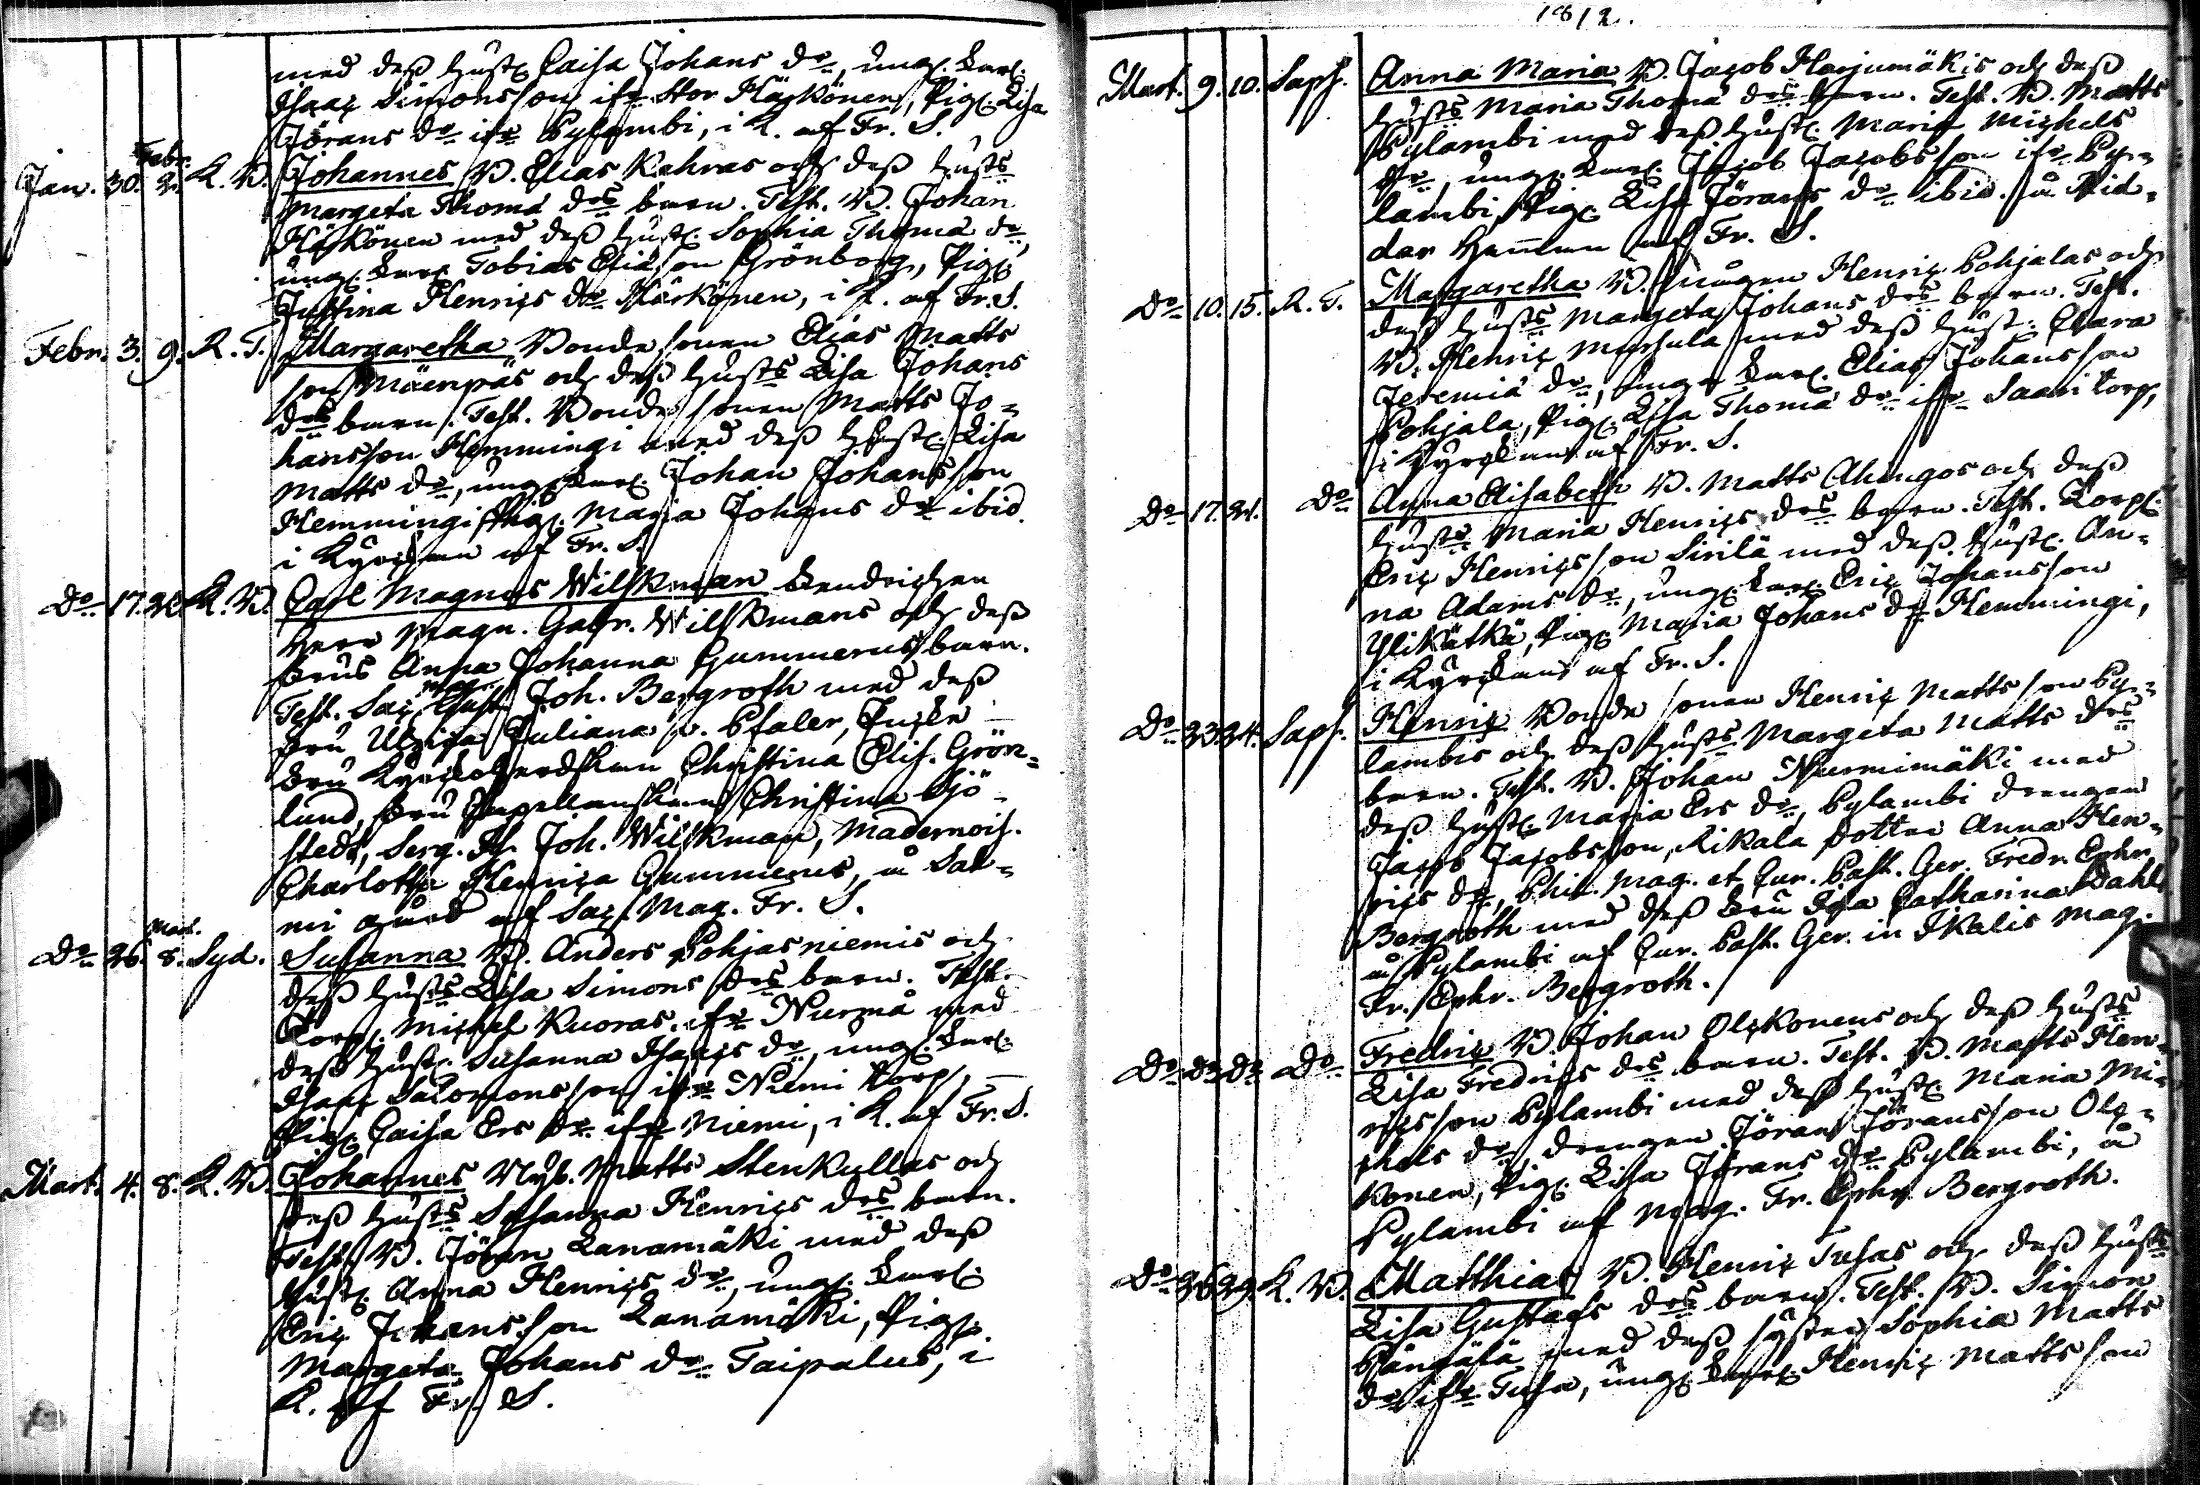 med deß hust. Caisa Johans dr, ung. karl.
Isaac Simonsson ifr Stor Häskönen, Pig. Lisa
Jörans dr ifr Pylambi, i K. af Fr. S.
Febr.
Jan. 30. 2. K. B. Johannes B. Elias Kahras och deß hust:s
Margeta Thomæ dr:s barn. Test. B. Johan
Häskönen med deß hust. Sophia Thomæ dr,
ung. karl Tobias Eliasson Grönborg, Pig.
Justina Henrics dr Häskönen, i K. af Fr. S.
Febr. 3. 9. R. T. Margaretha Bonde sonen Elias Matts
son Mäenpäs och deß hust:s Lisa Johans
dr:s barn. Test. Bonde sonen Matts Jo=
hansson Hemmingi med deß hust. Lisa
Matts dr, ung. karl. Johan Johansson
Hemmingi, Pig. Maria Johans dr ibid.
i Kyrckan af Fr. S.
Do 17. 21. K. B. Carl Magnus Wilskman
Herr Magn. Gabr. Wilskmans och deß
Frus Anna Johanna Gummerus barn.
Test. Joh. Bergroth med deß
Fru Ulrica Juliana v. Pfaler,
Fru Kyrckoherdskan Christina Elis. Grön=
lund, Fru Capellanskan Christina Sjö=
stedt, Serg. Joh. Wilskman, Mademois.
Charlotta Henrica Gummerus, å Sal=
mi gård af Mag. Fr. S.
Mart.
Do 26. 8. Syd. Susanna B. Anders Pohjasniemis och
deß hust:s Lisa Simons dr:s barn. Test.
Torp. Michel Kuoras ifr Nurmå med
deß hust. Susanna Isaacs dr, ung. karl.
Isaac Salomonsson ifr Niemi Torp,
Pig. Caisa Ers dr ifr Niemi, i K. af Fr. S.
Mart. 4. 8. K. B. Johannes Nyb. Matts Stenkullas och
deß hust:s Susanna Henrics dr:s barn.
Test. B. Jöran Lanamäki med deß
hust. Anna Henrics dr, ung. karl.
Eric Johansson Lanamäki, Pig.
Margeta Johans dr Taipalus, i
K. af Fr. S.
1812.
Mart. 9. 10. Saps. Anna Maria B. Jacob Harjumäkis och deß
hust:s Maria Thomæ dr:s barn. Test. B. Matts
Pylambi med deß hust. Maria Michels
dr, ung. karl. Jacob Jacobsson ifr Py=
lambi, Pig. Lisa Jörans dr ibid. å Rid=
dar Heman af Fr. S.
Do 10. 15. R. T. Margaretha B. Henric Pohjalas och
deß hust:s Margeta Johans dr:s barn. Test.
B. Henric Marsula med deß hust. Clara
Jeremiæ dr, unga karl. Elias Johansson
Pohjala, Pig. Lisa Thomæ dr ifr Saari torp,
i Kyrckan af Fr. S.
Do 17. 21. Do Anna Elisabeth B. Matts Ahingos och deß
hust:s Maria Henrics dr:s barn. Test. Torp.
Eric Henricsson Sirilä med deß hust. An=
na Adams dr, ung. karl. Eric Johansson
Ylikätkä, Pig. Maria Johans dr Hemmingi,
i Kyrckan af Fr. S.
Do 23. 24. Saps. Henric Bonde sonen Henric Mattsson Py=
lambis och deß hust:s Margeta Matts dr:s
barn. Test. B. Johan Nurmimäki med
deß hust. Maria Ers dr, Pylambi drengen
Jacob Jacobsson, Rikala dotter Anna Hen=
rics dr, Phil. Mag. et Cur. Past. Ger. Fredr. Ephr.
Bergroth med deß Fru Eva Catharina Dahl
å Pylambi af Cur. Past. Ger. in Ikalis Mag.
Fr. Ephr. Bergroth.
Do Do Do Do Fredric B. Johan Olckonens och deß hust:s
Lisa Fredrics dr:s barn. Test. B. Matts Hen=
ricsson Pylambi med deß hust. Maria Mi=
chels dr, drengen Jöran Jöransson Olc=
konen, Pig. Lisa Jörans dr Pylambi, å
Pylambi af Mag. Fr. Ephr. Bergroth.
Do 26. 29. K. B. Matthias B. Henric Tusas och deß hust:s
Lisa Gustafs dr:s barn. Test. B. Simon
Pängälä med deß syster Sophia Matts
dr ifr Tusa, ung. karl. Henric Mattsson